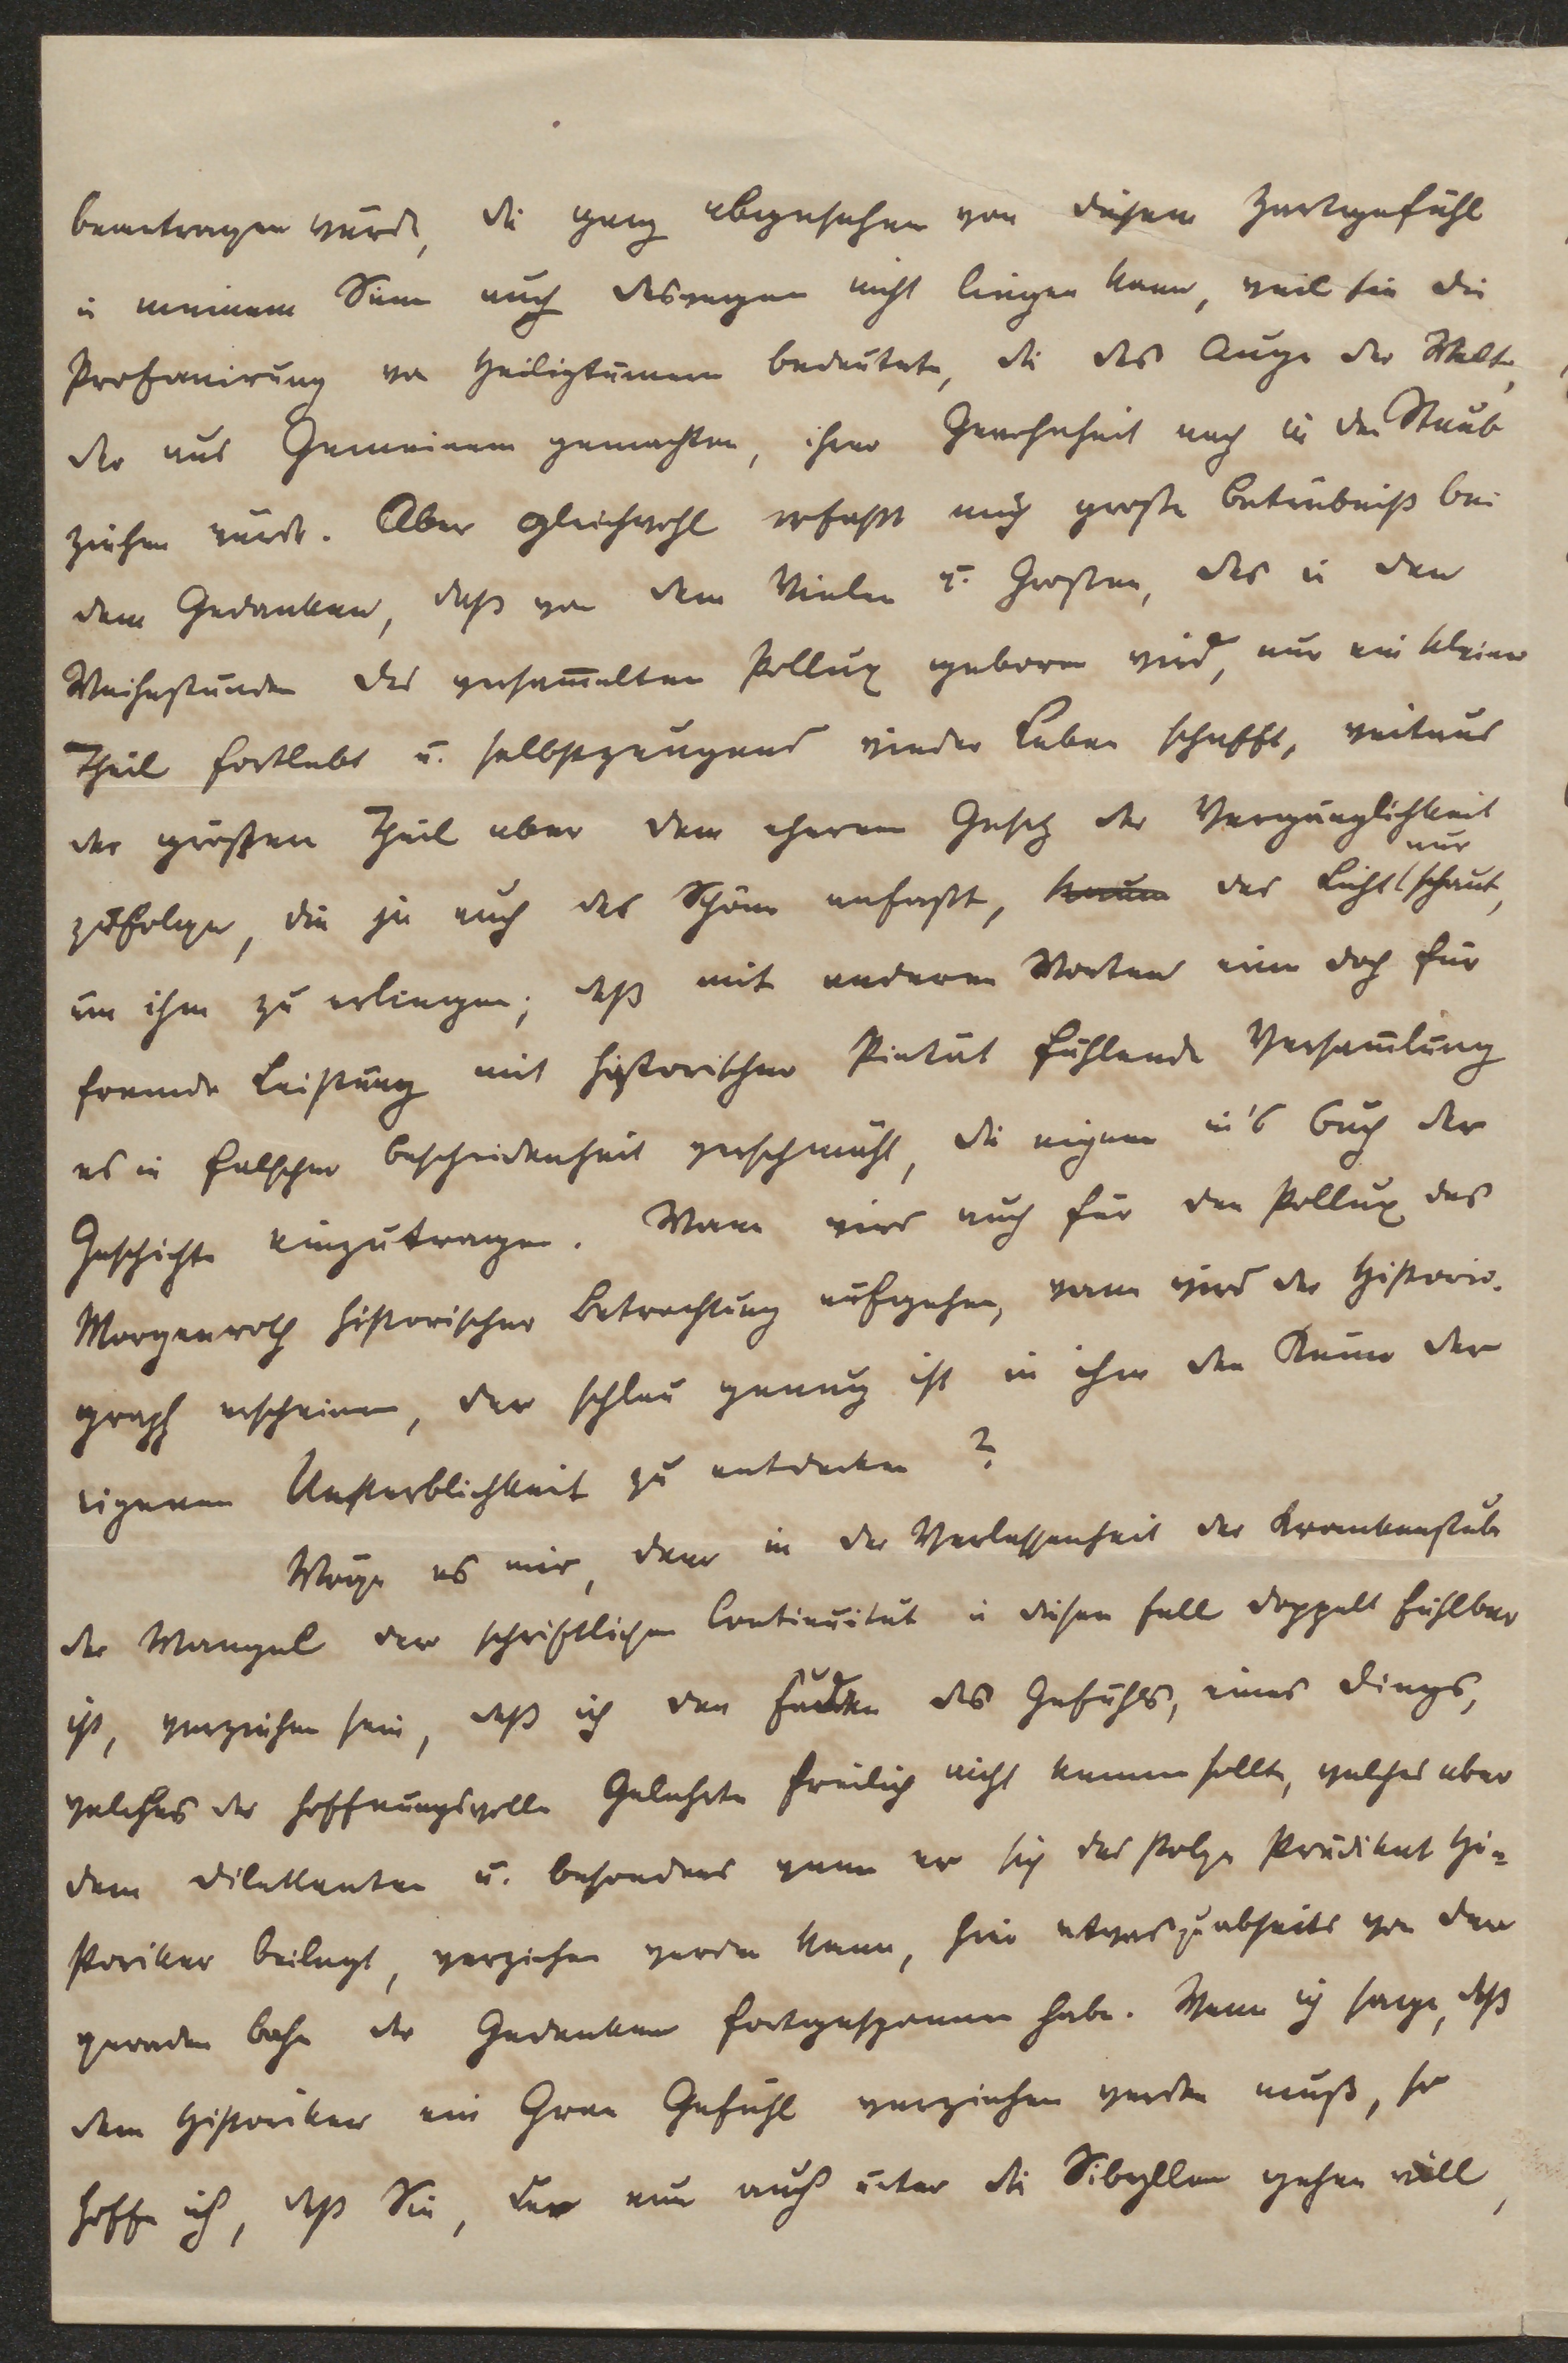 beantragen würde, die ganz abgesehen von diesem Zartgefühl
in meinem Sinn auch deswegen nicht liegen kann, weil sie die
Profanirung von Heiligtümern bedeutete, die das Auge der Welt,
der aus Gemeinem gemachten, ihrer Gewohnheit nach in den Staub
ziehen würde. Aber gleichwohl erfaßt mich große Betrübniß bei
dem Gedanken, daß von dem Vielen u. Großen, das in den
Weihestunden des versam̄elten Pollux geboren wird, nur ein kleiner
Theil fortlebt u. selbstzeugend wieder Leben schafft, weitaus
der größere Theil aber dem ehernen Gesetz der Vergänglichkeit
zufolge, die ja auch das Schöne anfaßt, kaum das Licht nur schaut,
um ihm zu erliegen; daß mit anderen Worten eine doch für
fremde Leistung mit historischer Pietät fühlende Versam̄lung
es in falscher Bescheidenheit verschmäht, die eigene in's Buch der
Geschichte einzutragen. Wann wird auch für den Pollux das
Morgenroth historischer Betrachtung aufgehen, wann wird der Historio-
graph erscheinen, der schlau genug ist in ihm den Keim der
eigenen Unsterblichkeit zu entdecken?
Möge es mir, dem in der Verlassenheit der Krankenstube
der Mangel der schriftlichen Continuität in diesem Fall doppelt fühlbar
ist, verziehen sein, daß ich den Faden des Gefühls, eines Dings,
welches der hoffnungsvolle Gelehrte freilich nicht kennen sollte, welches aber
dem Dilettanten u. besonders wenn er sich das stolze Prädikat Hi-
storiker beilegt, verziehen werden kann, hier etwas zu abseits von der
geraden Bahn der Gedanken fortgesponnen habe. Wenn ich sage, daß
dem Historiker ein Gran Gefühl verziehen werden muß, so
hoffe ich, daß Sie, der nun auch unter die Sibyllen gehen will,